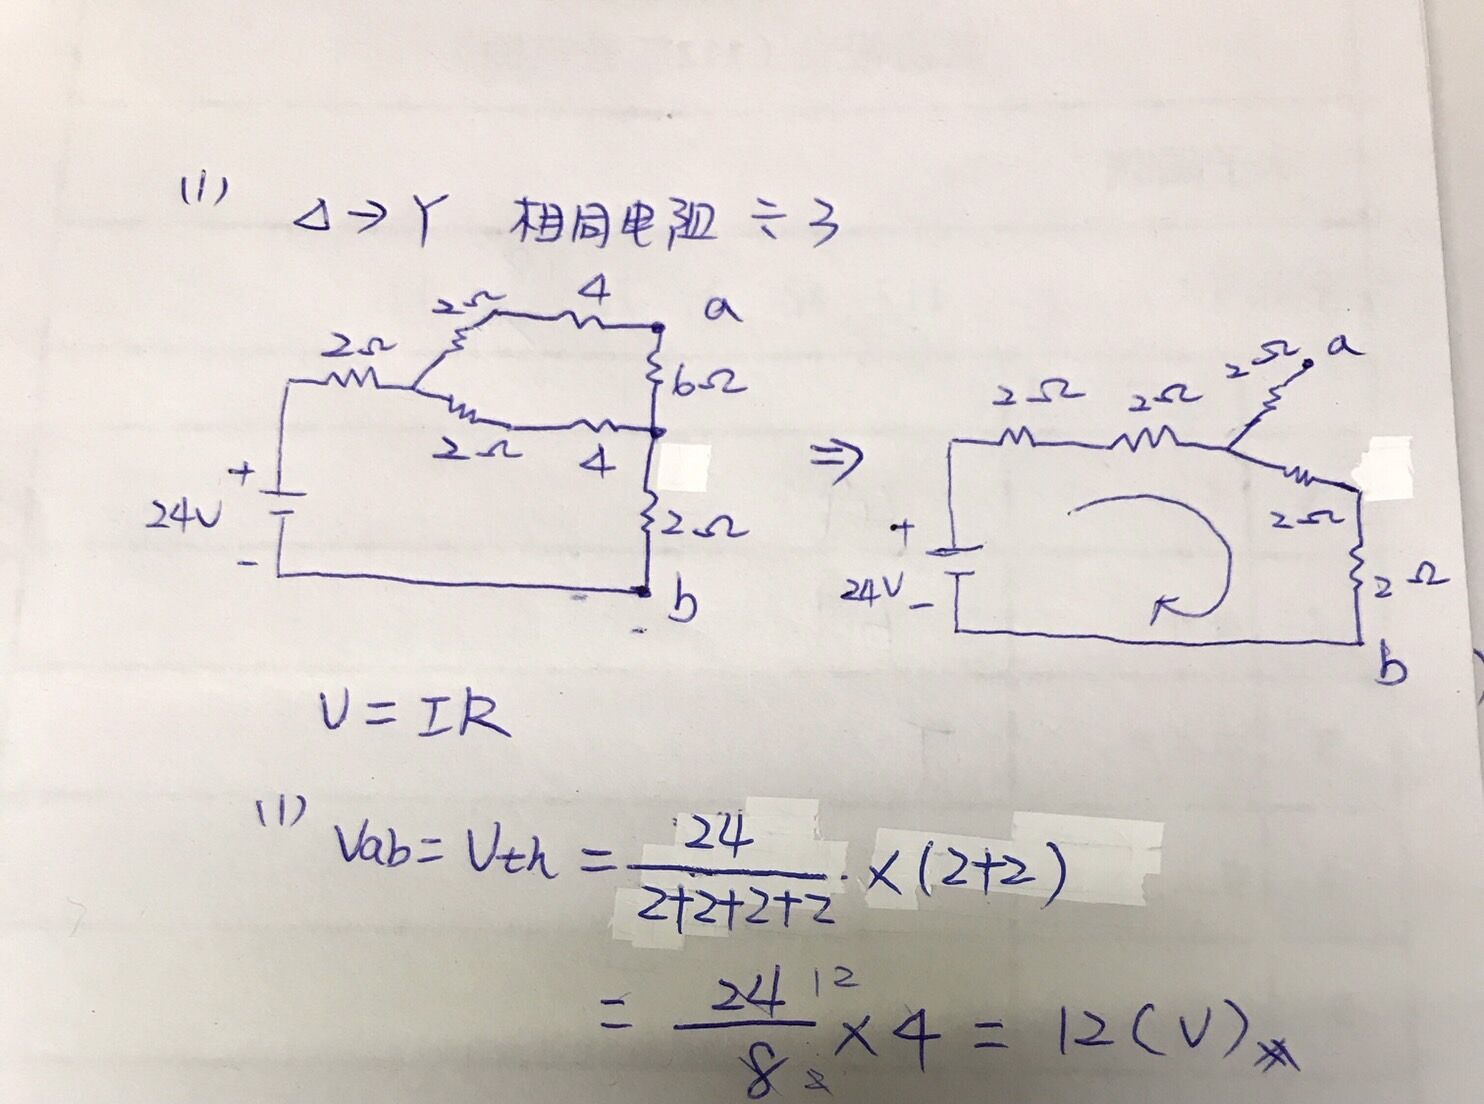 (1) △→Y 相同电阻 ÷3
2Ω 2Ω 4 a
6Ω
2Ω 4
+
24V
-
2Ω
b
⇒
2Ω 2Ω 2Ω a
2Ω
+
24V
-
2Ω
b
V=IR
(1) Vab=Vth= 24/(2+2+2+2) ×(2+2)
= 24/8 ×4 = 12(V)
12